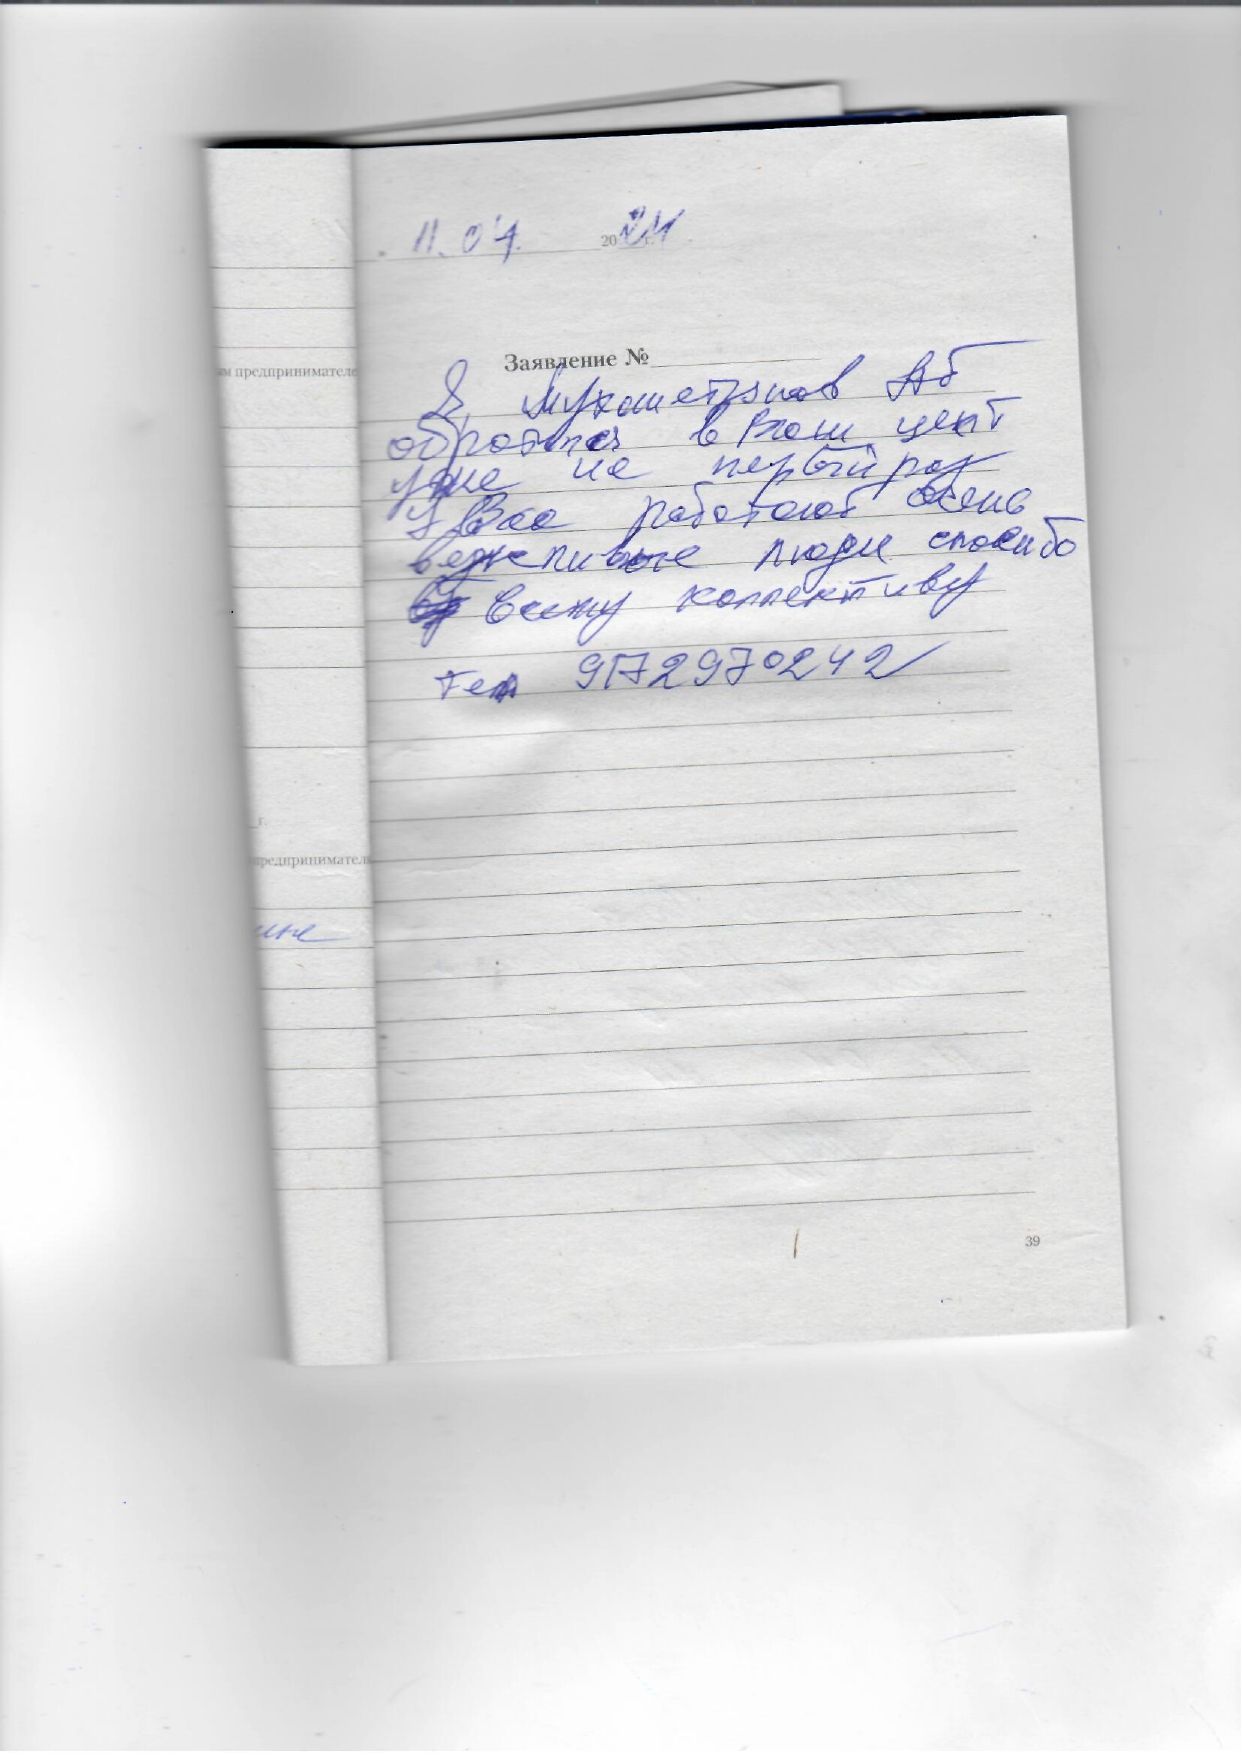 11.04. 2024 г.
Заявление №
Я, Мухаметзянов АБ
обратился в Ваш цент
уже не первый раз
У Вас работают очень
вежливые люди спасибо
всему коллективу
тел 9172970242
ым предпринимателе
г.
предпринимател
ине
39